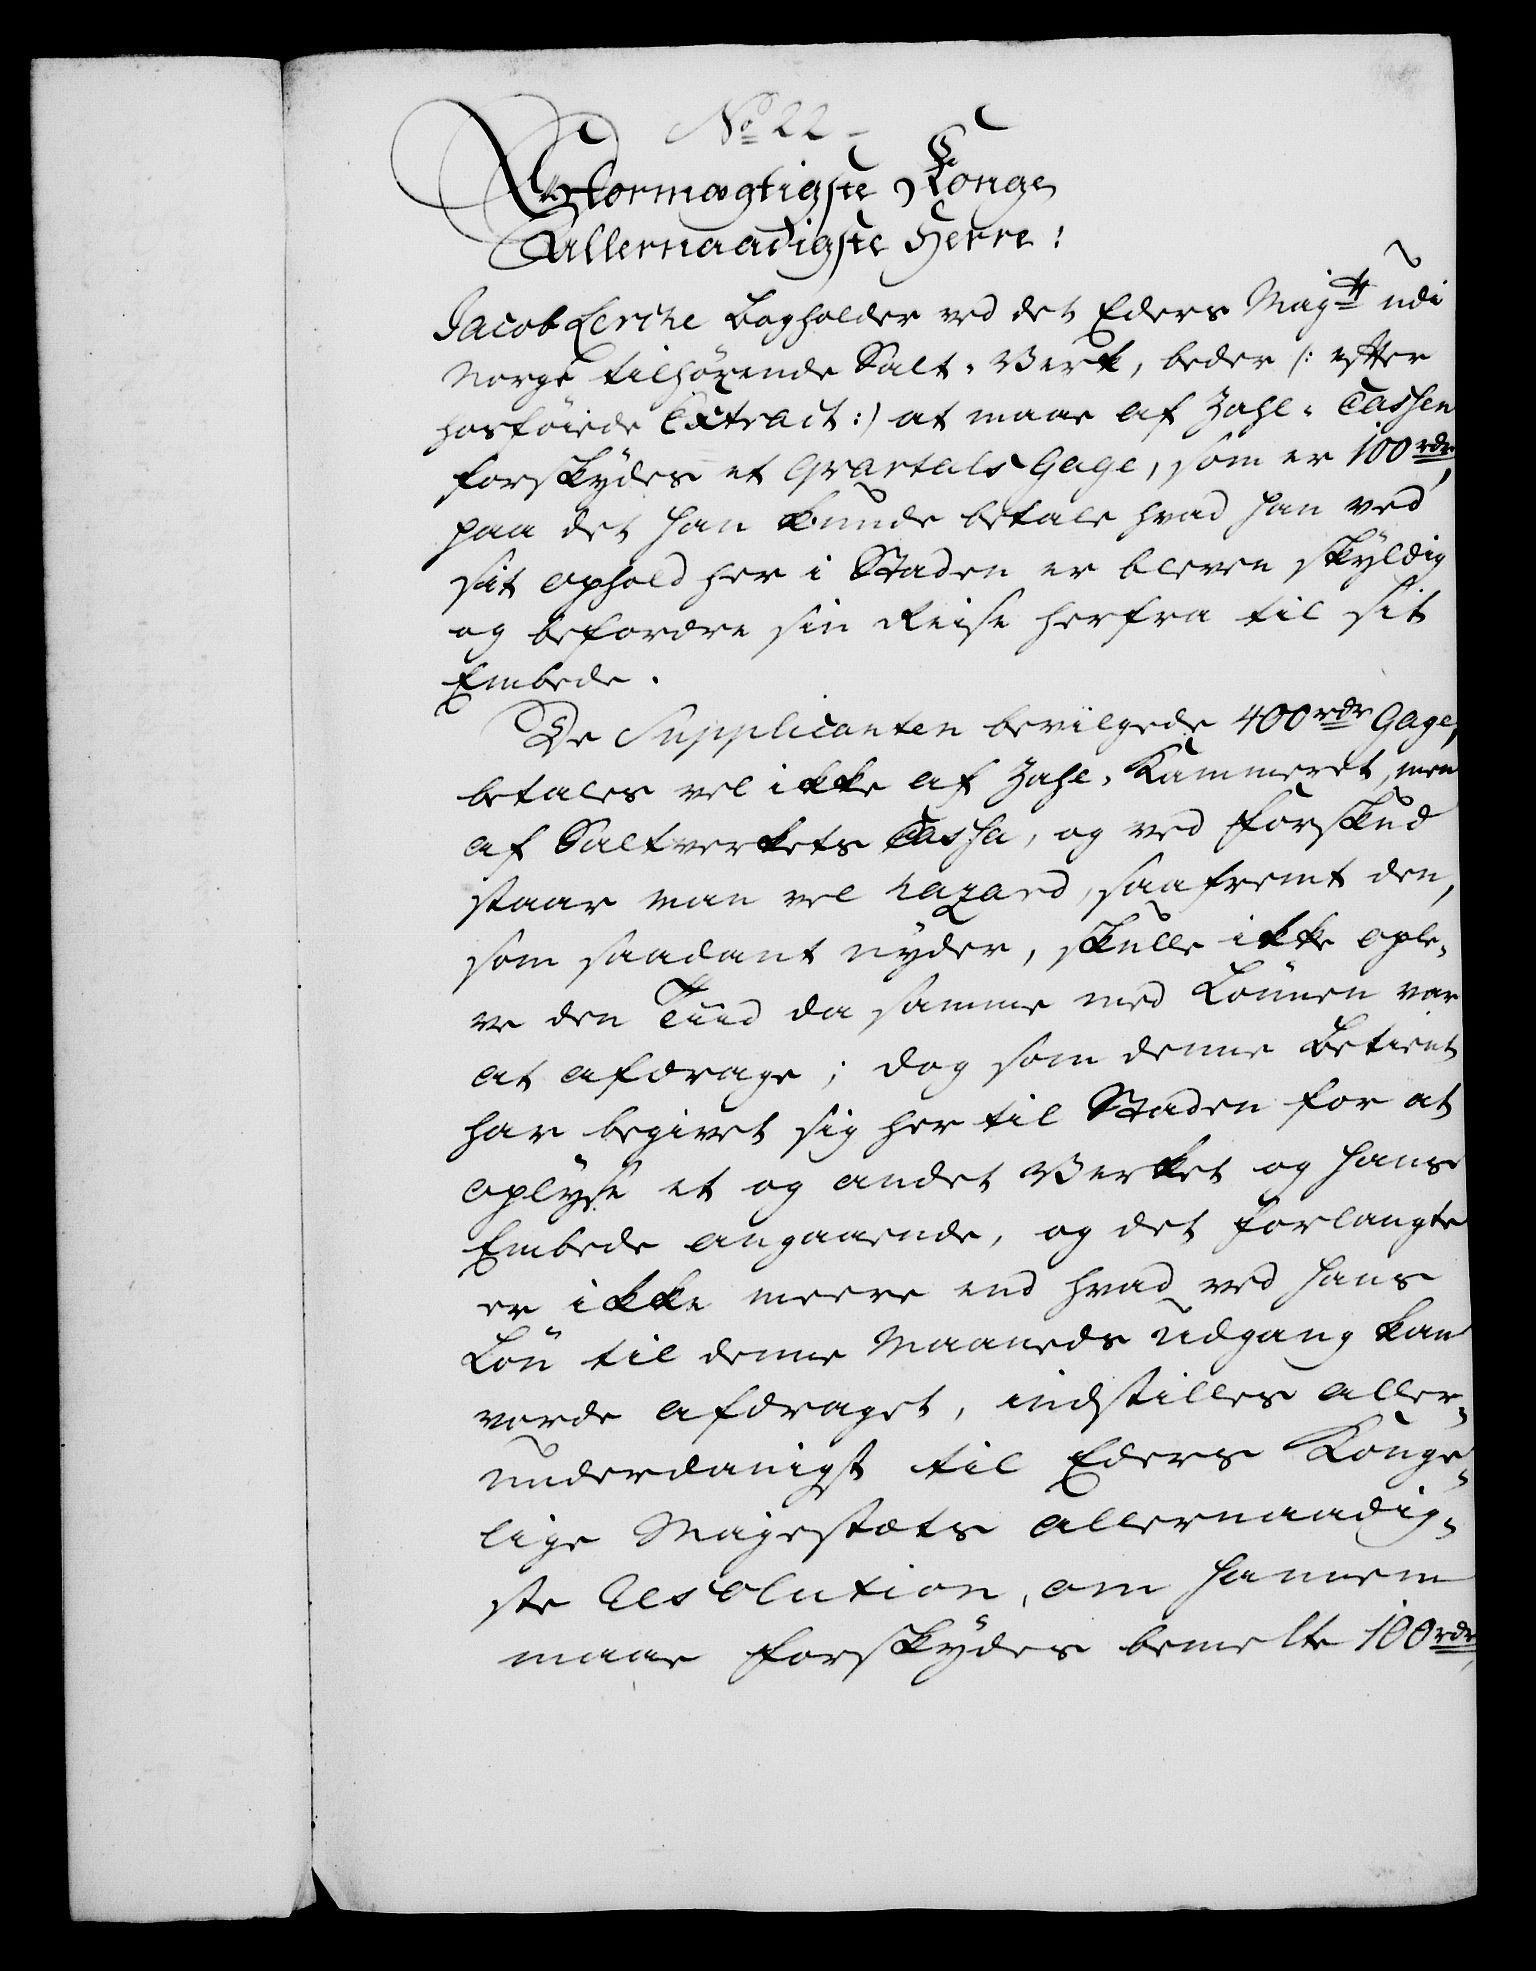 No 22 -
Stormægtigste Konge
Allernaadigste Herre!
Jacob Lerche Bogholder ved det Eders Maj:tt udi
Norge tilhørende Salt-Verk, beder (: efter
hosføiede Extract :) at maae af Zahl-Cassen
forskydes et Qvartals Gage, som er 100 rdr,
paa det han kunde betale hvad han ved
sit ophold her i Staden er bleven skyldig
og befordre sin Reise herfra til sit
Embede.
De Supplicanten bevilgede 400 rdr Gage,
betales vel ikke af Zahl-Kammeret, men
af Saltverkets Cassa, og ved Forskud
staar man vel hazard, saafremt den,
som saadant nyder, skulle ikke ople-
ve den Tiid da samme med Lønnen var
at afdrage; dog som denne Betient
har begivet sig her til Staden for at
oplyse et og andet Verket og hans
Embede angaaende, og det forlangte
er ikke meere end hvad ved hans
Løn til denne Maaneds Udgang kan
vorde afdraget, indstilles aller-
underdanigst til Eders Konge-
lige Majestæts allernaadig-
ste Resolution, om hannem
maae forskydes bemelte 100 rdr,